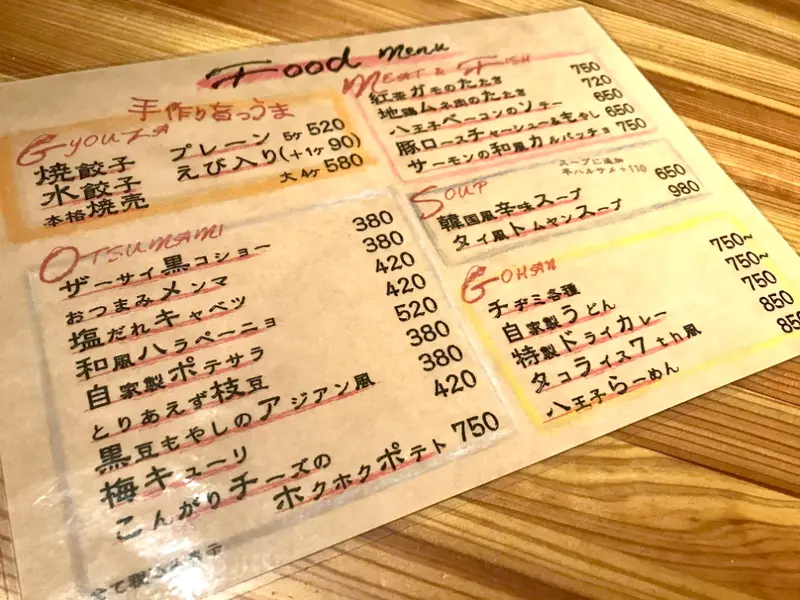 Food Menu
手作り旨っうま
GYOUZA
焼餃子 プレーン 5ヶ 520
水餃子 えび入り(+1ヶ90)
本格焼売 大4ヶ 580
OTSUMAMI
ザーサイ黒コショー 380
おつまみメンマ 380
塩だれキャベツ 420
和風ハラペーニョ 420
自家製ポテサラ 520
とりあえず枝豆 380
黒豆もやしのアジアン風 380
梅キューリ 420
こんがりチーズの
ホクホクポテト 750
全て
MEAT & FISH
紅茶ガモのたたき 750
地鶏ムネ肉のたたき 720
八王子ベーコンのソテー 650
豚ロースチャーシュー&もやし 650
サーモンの和風カルパッチョ 750
SOUP
スープに追加
平ハルサメ+110
韓国風辛味スープ 650
タイ風トムヤンスープ 980
GOHAN
チヂミ各種 750~
自家製うどん 750~
特製ドライカレー 750
タコライス7th風 850
八王子らーめん 850